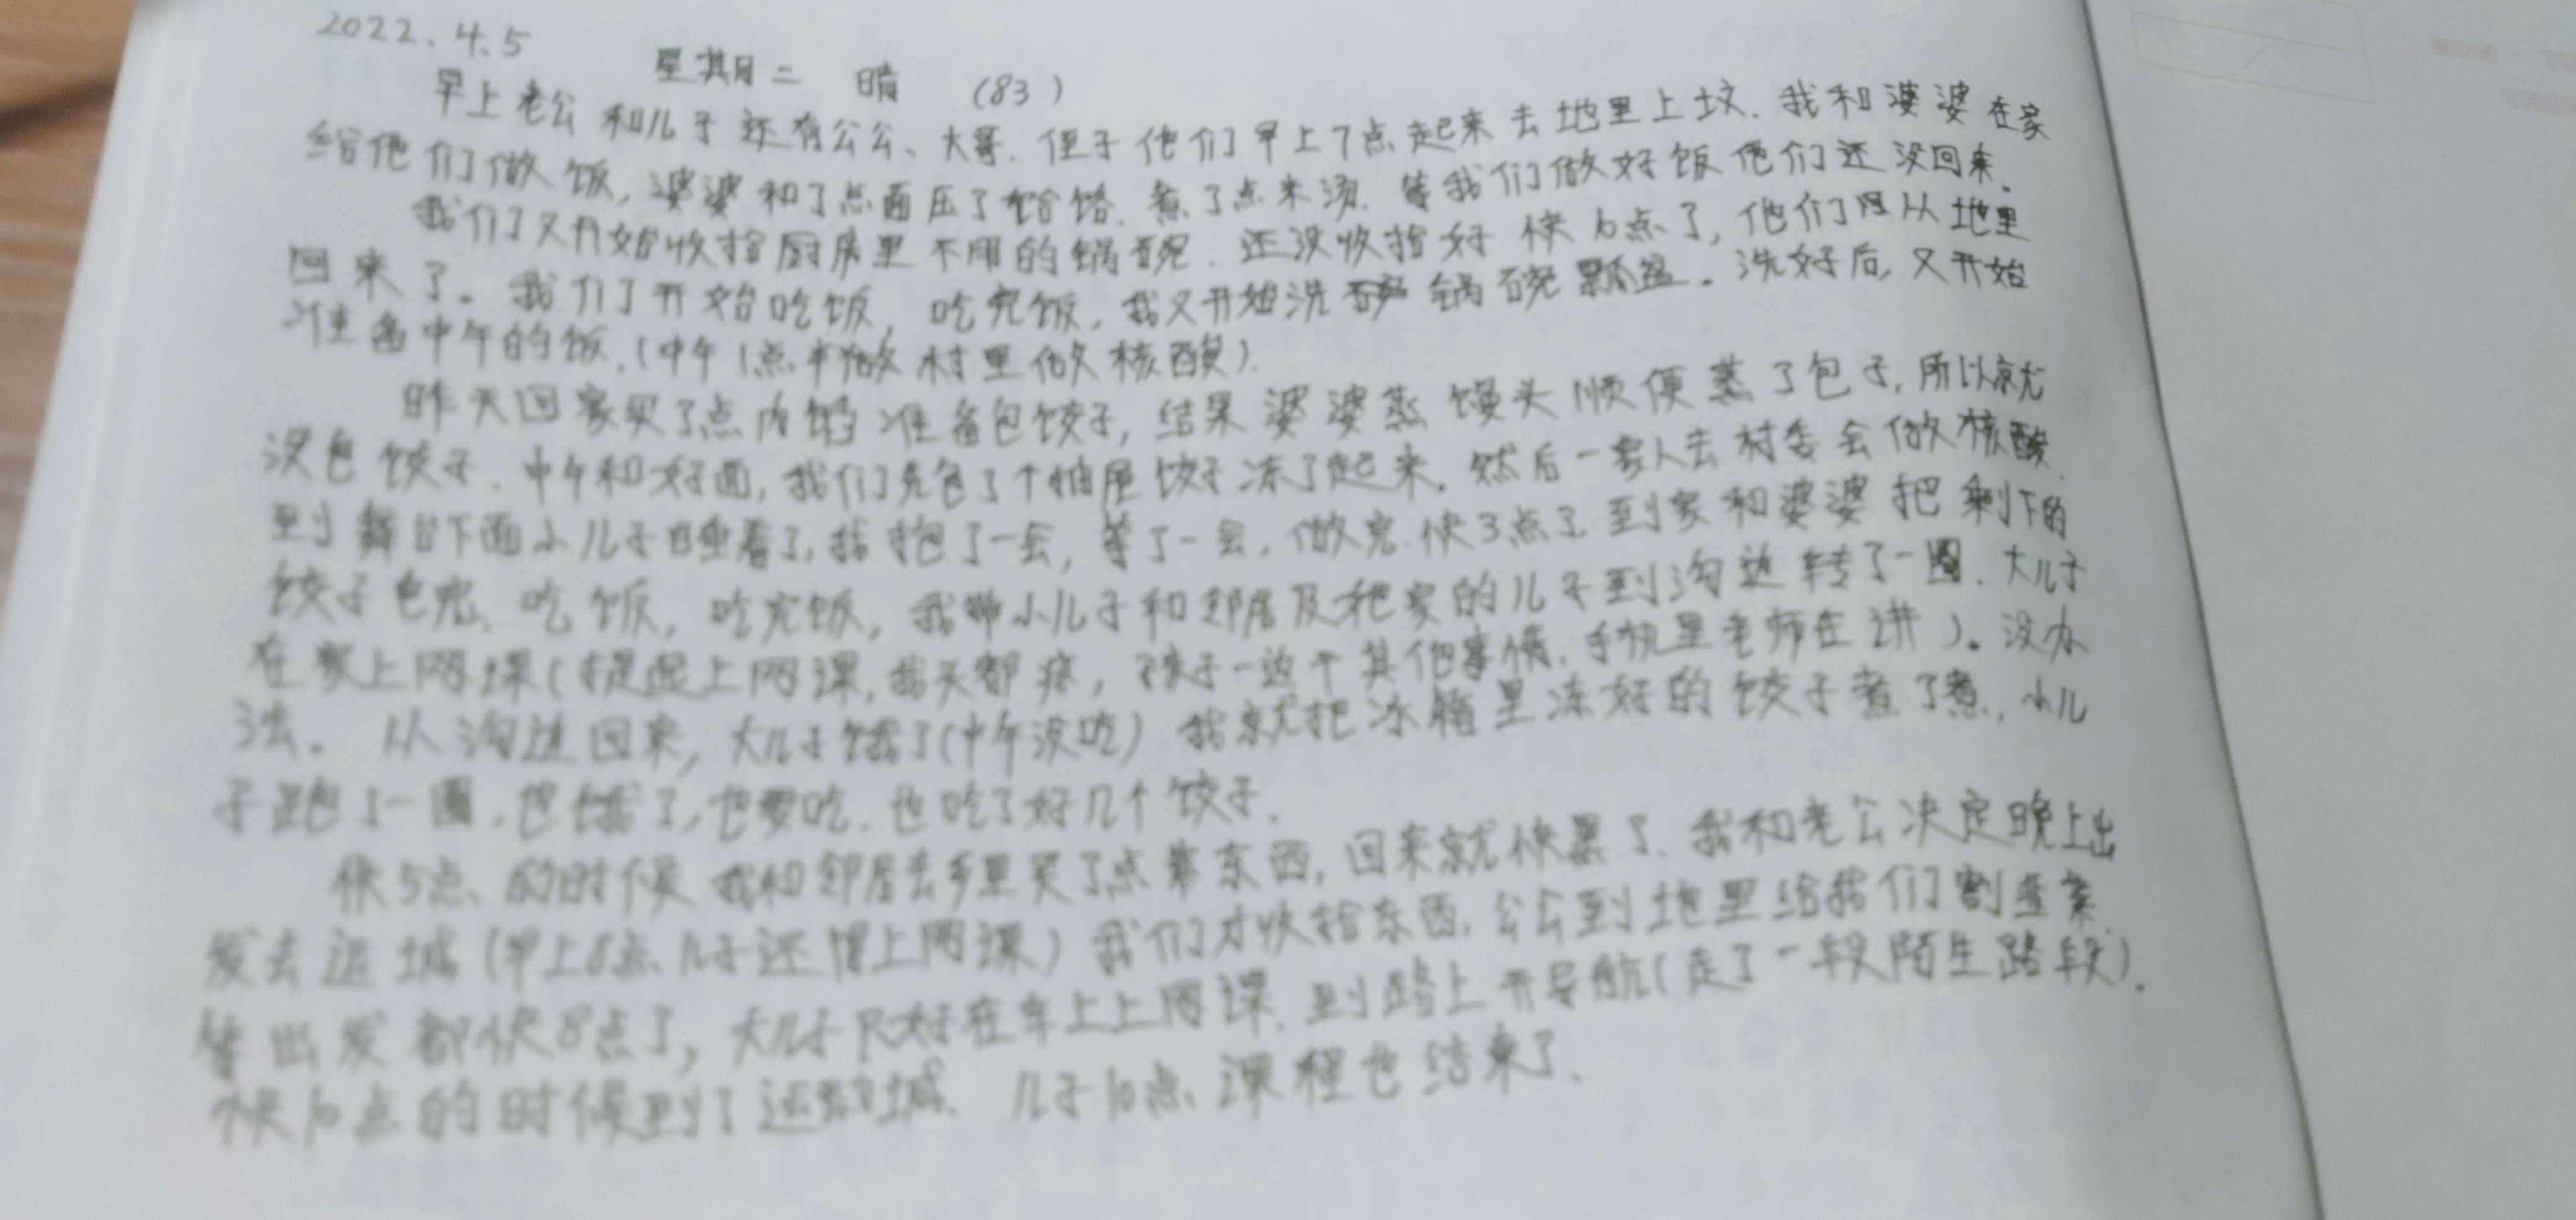 2022.4.5
星期二 晴 (83)
早上老公和儿子还有公公、大哥、侄子他们早上7点起来去地里上坟.我和婆婆在家
给他们做饭,婆婆和了点面压了饸饹.煮了点米汤.等我们做好饭他们还没回来.
我们又开始收拾厨房里不用的锅碗.还没收拾好快10点了,他们从地里
回来了。我们开始吃饭,吃完饭,我又开始洗锅碗瓢盆.洗好后,又开始
准备中午的饭.(中午1点半做村里做核酸).
昨天回家买了点肉馅准备包饺子,结果婆婆蒸馒头顺便蒸了包子,所以就
没包饺子.中午和好面,我们先包了个抽屉饺子冻了起来.然后一家人去村委会做核酸.
到舞台下面小儿子睡着了,我抱了一会,等了一会,做完快3点了到家和婆婆把剩下的
饺子包完.吃饭,吃完饭,我带小儿子和邻居及家的儿子到沟边转了一圈.大儿子
在家上网课(提起上网课,我头都疼,孩子一边干其他事情,手机里老师在讲)。没办
法。从沟边回来,大儿子饿了(中午没吃)我就把冰箱里冻好的饺子煮了煮,小儿
子跑了一圈,也饿了,也要吃.也吃了好几个饺子.
快5点的时候我和邻居去乡里买了点东西,回来就快黑了.我和老公决定晚上出
发去运城(早上8点儿子还得上网课)我们才收拾东西.公公到地里给我们割韭菜.
等出发都快8点了,大儿子只好在车上上网课.到路上开导航(走了一段陌生路段).
快10点的时候到了运城.儿子10点课程也结束了.